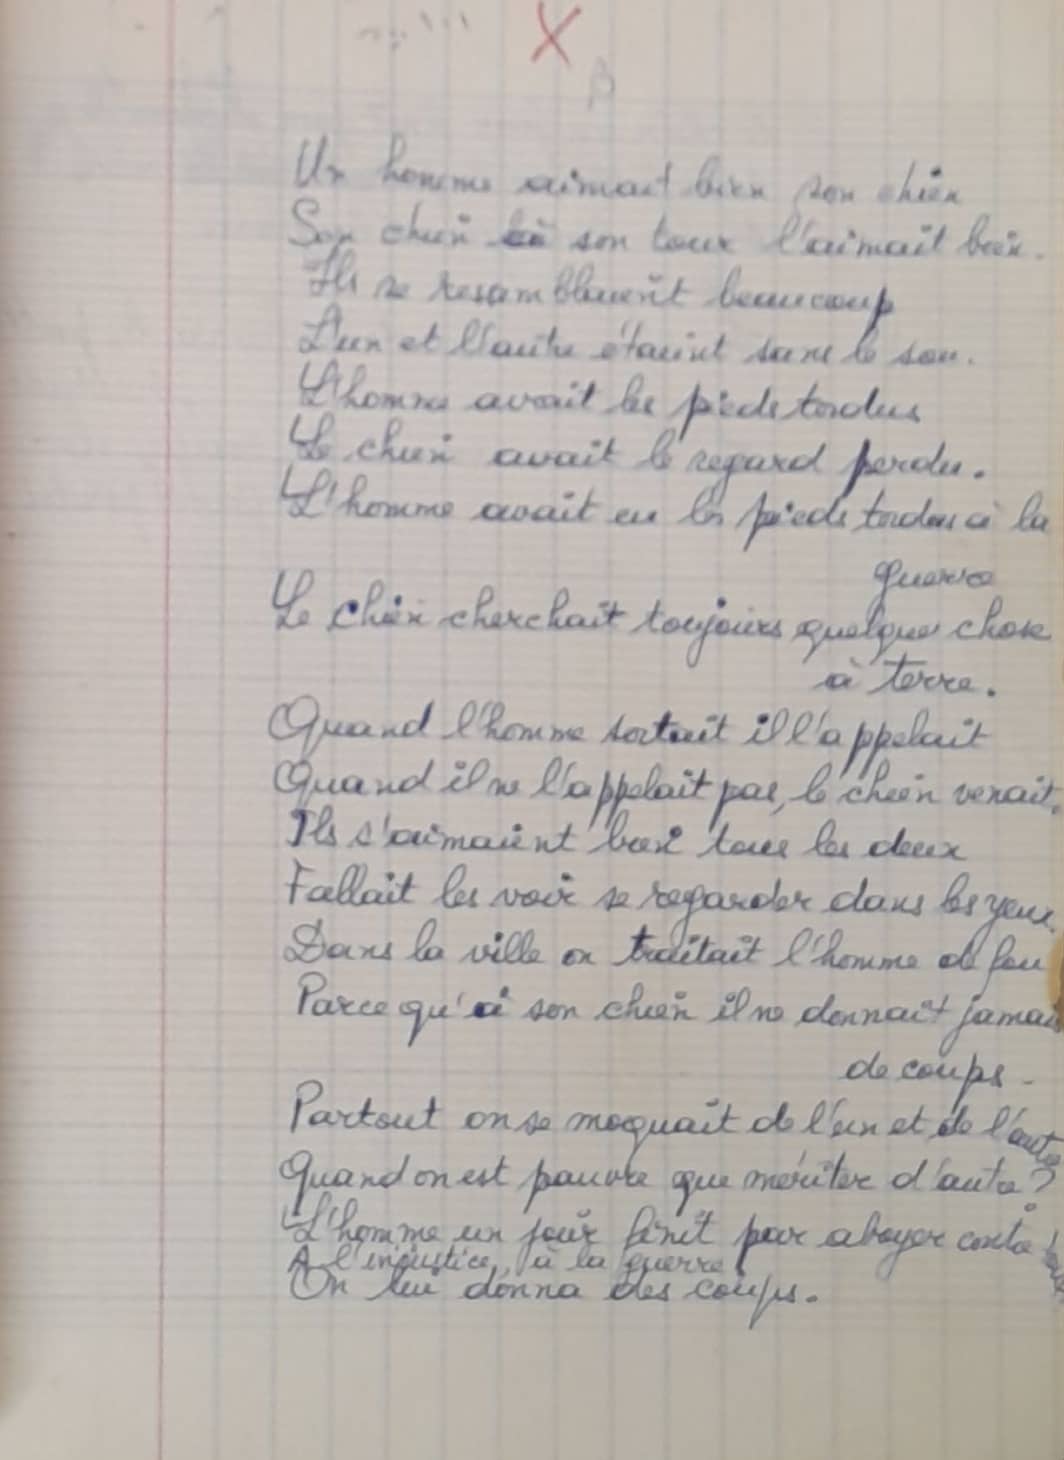 Un homme aimait bien son chien
Son chien à son tour l'aimait bien.
Ils se resemblaient beaucoup
L'un et l'autre étaint sans le sou.
L'homme avait les pieds tordus
Le chien avait le regard perdu.
L'homme avait eu les pieds tordus à la
guerre
Le chien cherchait toujours quelque chose
à terre.
Quand l'homme sortait il l'appelait
Quand il ne l'appelait pas, le chien venait.
Ils s'aimaient bien tous les deux
Fallait les voir se regarder dans les yeux.
Dans la ville on traitait l'homme de fou
Parce qu'à son chien il ne donnait jamais
de coups.
Partout on se moquait de l'un et de l'autre
Quand on est pauvre que mériter d'autre?
L'homme un jour finit par aboyer contre
A l'injustice, à la guerre
On lui donna des coups.